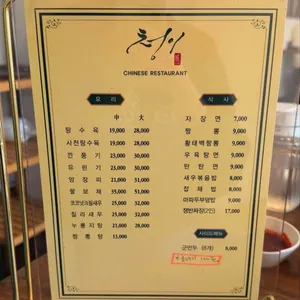 청이
CHINESE RESTAURANT
요 리
中 大
탕 수 육 19,000 28,000
사천탕수육 19,000 28,000
깐 풍 기 21,000 30,000
유 린 기 21,000 30,000
양 장 피 31,000 51,000
팔 보 채 35,000 51,000
코코넛크림새우 25,000 32,000
칠리새우 25,000 32,000
누룽지탕 21,000 28,000
짬 뽕 탕 15,000
식 사
자 장 면 7,000
짬 뽕 9,000
황태백짬뽕 9,000
우 육 탕 면 9,000
탄 탄 면 9,000
새우볶음밥 8,000
잡 채 밥 8,000
마파두부덮밥 9,000
쟁반짜장(2인) 17,000
사이드메뉴
군만두 (8개) 8,000